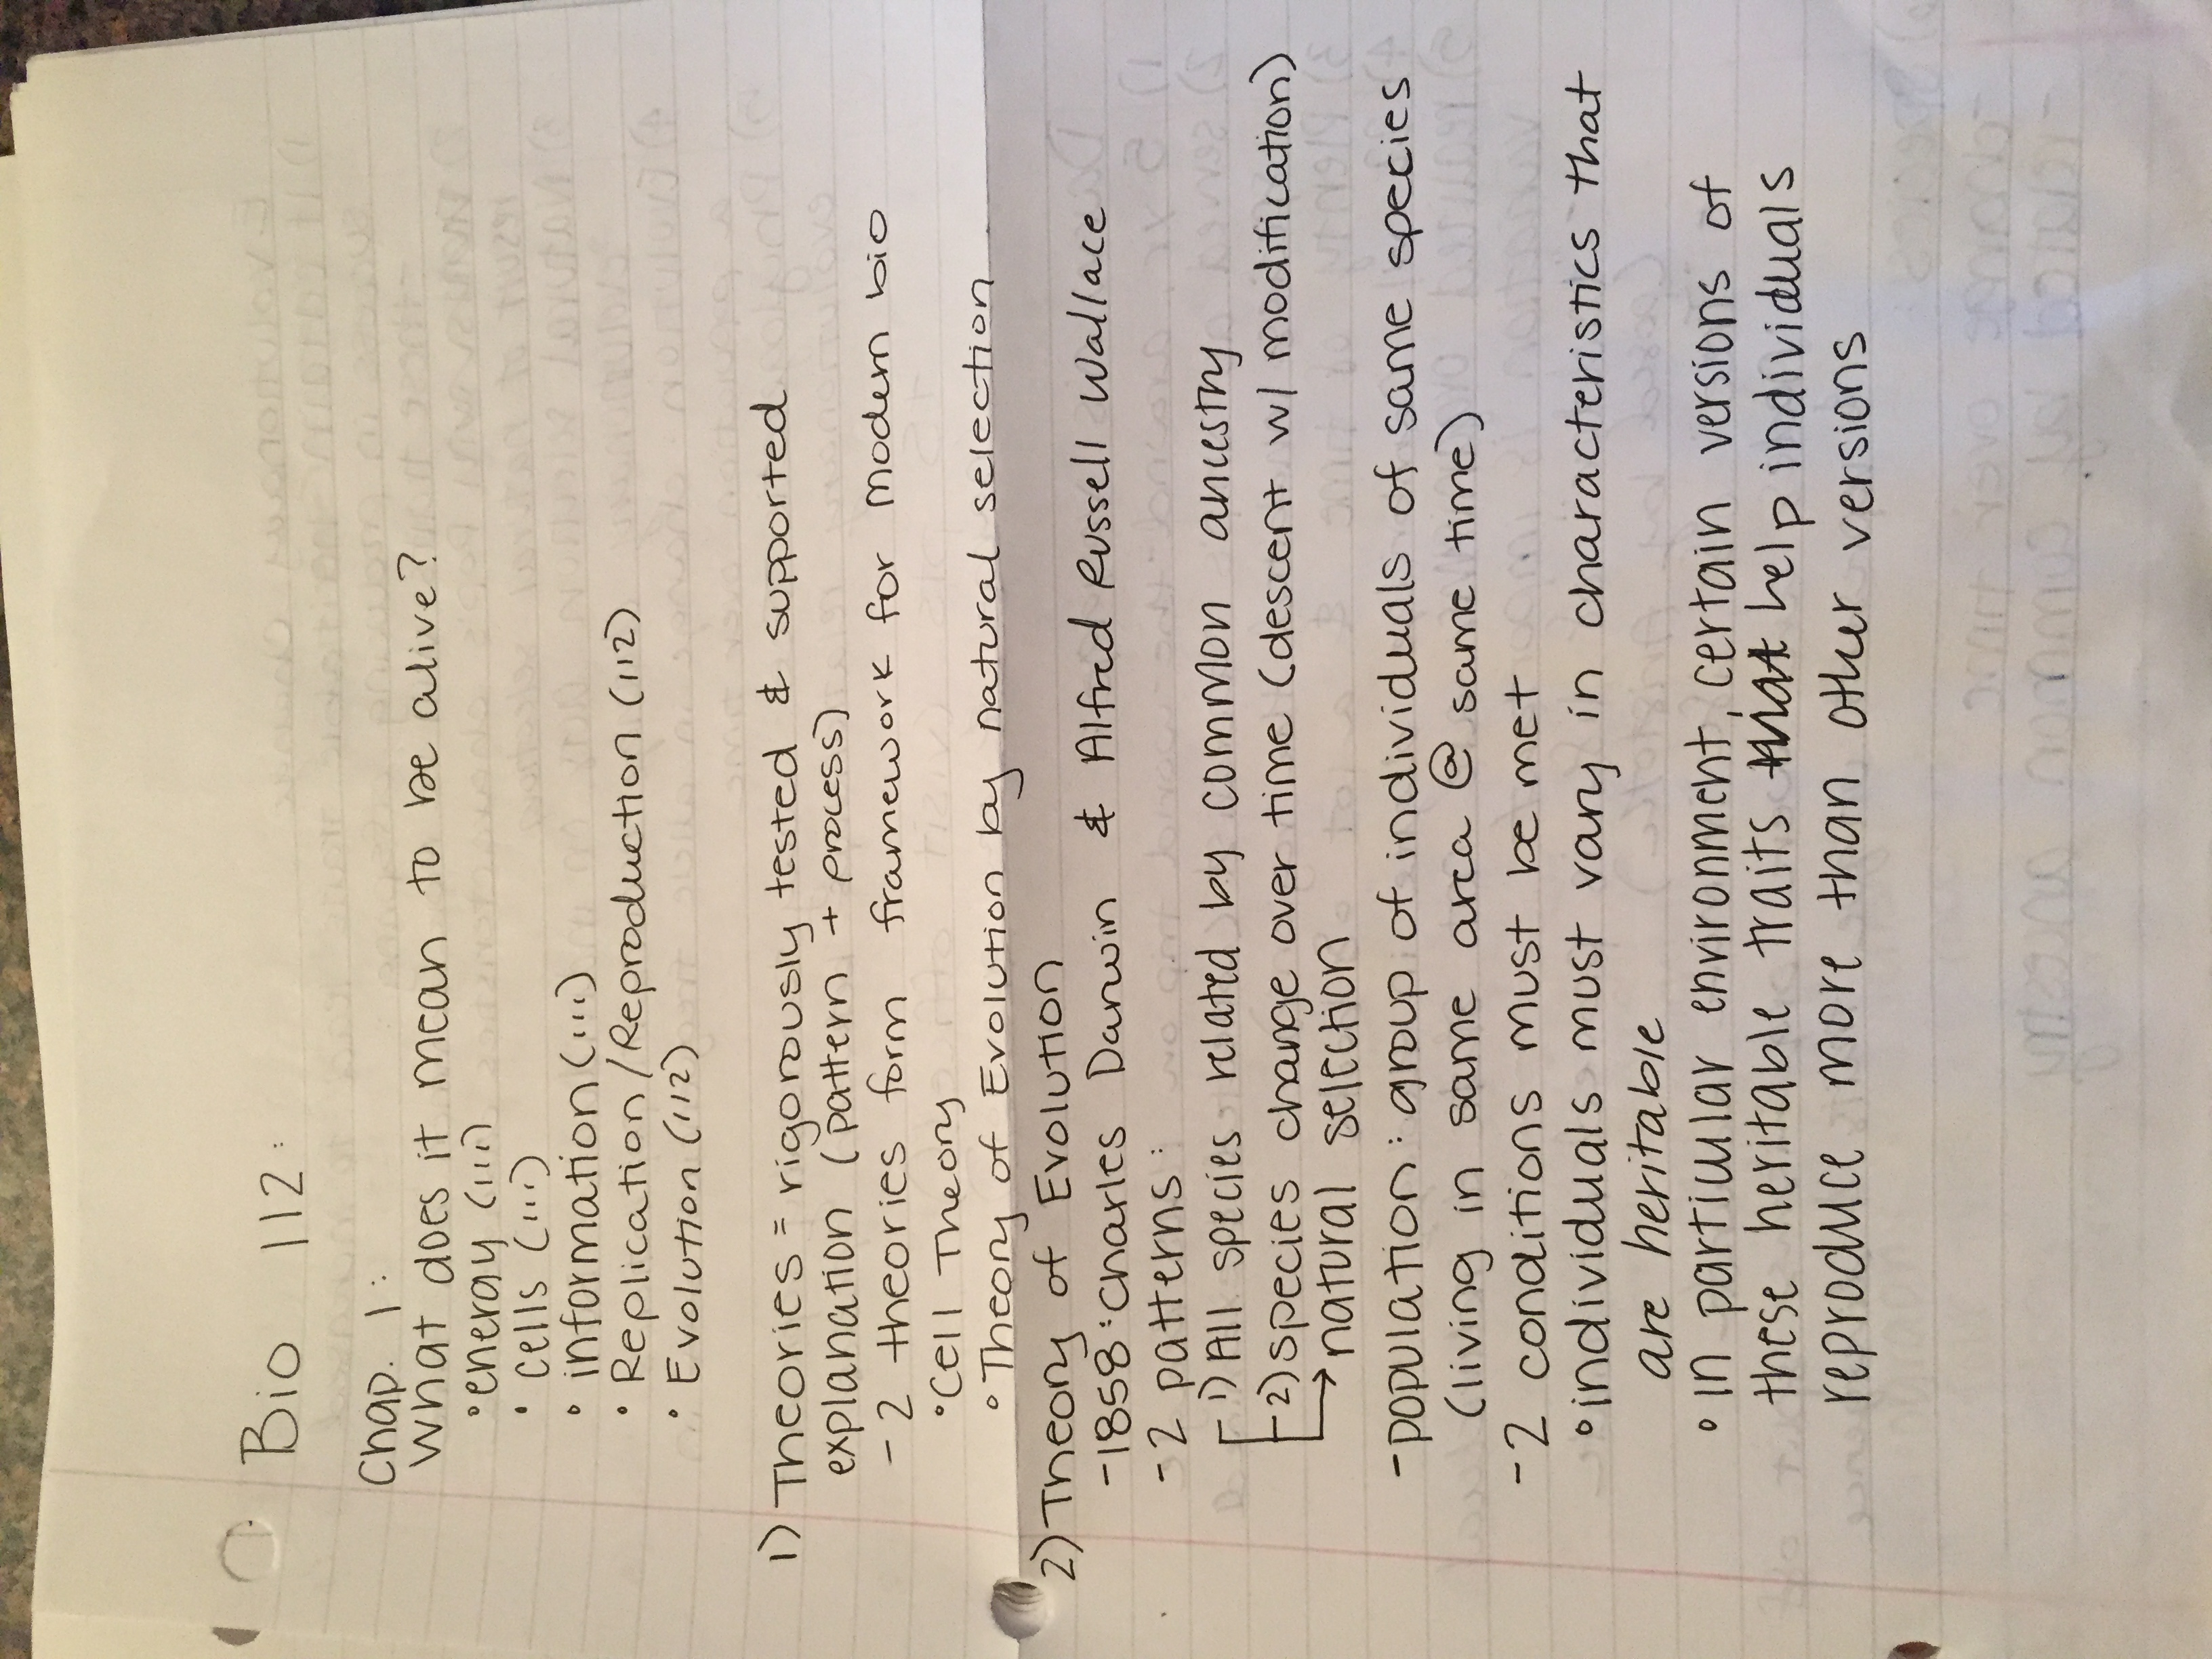 Bio 112:
Chap. 1:
What does it mean to be alive?
• energy (111)
• cells (111)
• information (111)
• Replication/Reproduction (112)
• Evolution (112)
1) Theories = rigorously tested & supported
explanation (pattern + process)
- 2 theories form framework for modern bio
• Cell Theory
• Theory of Evolution by natural selection
2) Theory of Evolution
- 1858: Charles Darwin & Alfred Russell Wallace
- 2 patterns:
1) All species related by common ancestry
2) species change over time (descent w/ modification)
→ natural selection
- population: group of individuals of same species
(living in same area @ same time)
- 2 conditions must be met
• individuals must vary in characteristics that
are heritable
• in particular environment, certain versions of
these heritable traits that help individuals
reproduce more than other versions